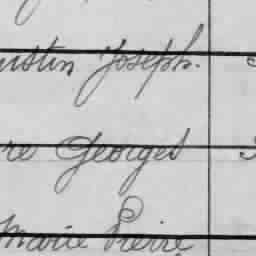 ustin Joseph.
re Georges
Marie Pierre